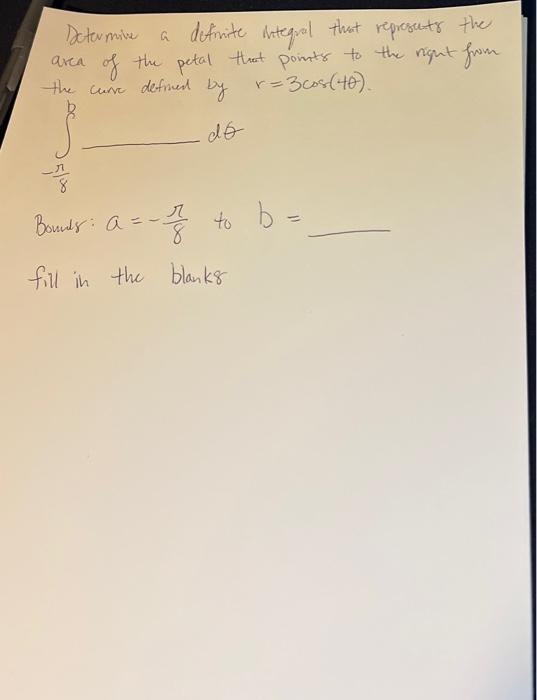 Determine a definite integral that represents the
area of the petal that points to the right from
the curve defined by r = 3cos(4θ).
b
∫ ______ dθ
-π/8
Bounds: a = -π/8 to b = ____
fill in the blanks